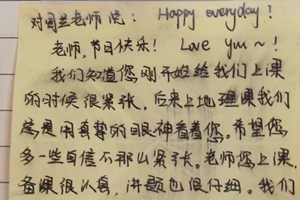 对周兰老师说： Happy everyday！
老师，节日快乐！ Love you ~！
我们知道您刚开始给我们上课
的时候很紧张，后来上地理课我们
总是用真挚的眼神看着您。希望您
多一些自信不那么紧张。老师您上课、
备课很认真，讲题也很仔细。我们